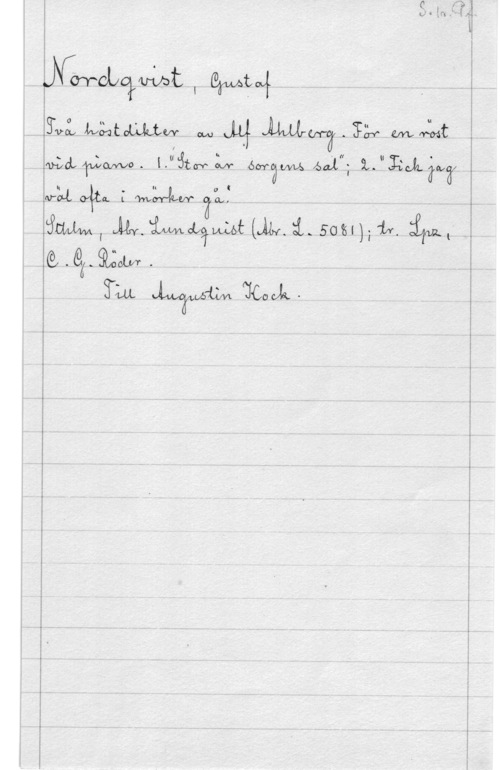 S. 1 r. Pf.
Nordqvist, Gustaf
Två höstdikter av Alf Ahlberg. För en röst
vid piano. 1. "Stor är sorgens sal"; 2. "Fick jag
väl ofta i mörker gå."
Sthlm, Abr. Lundquist (Abr. L. 5081); tr. Lpz,
C. G. Röder.
Till Augustin Kock.